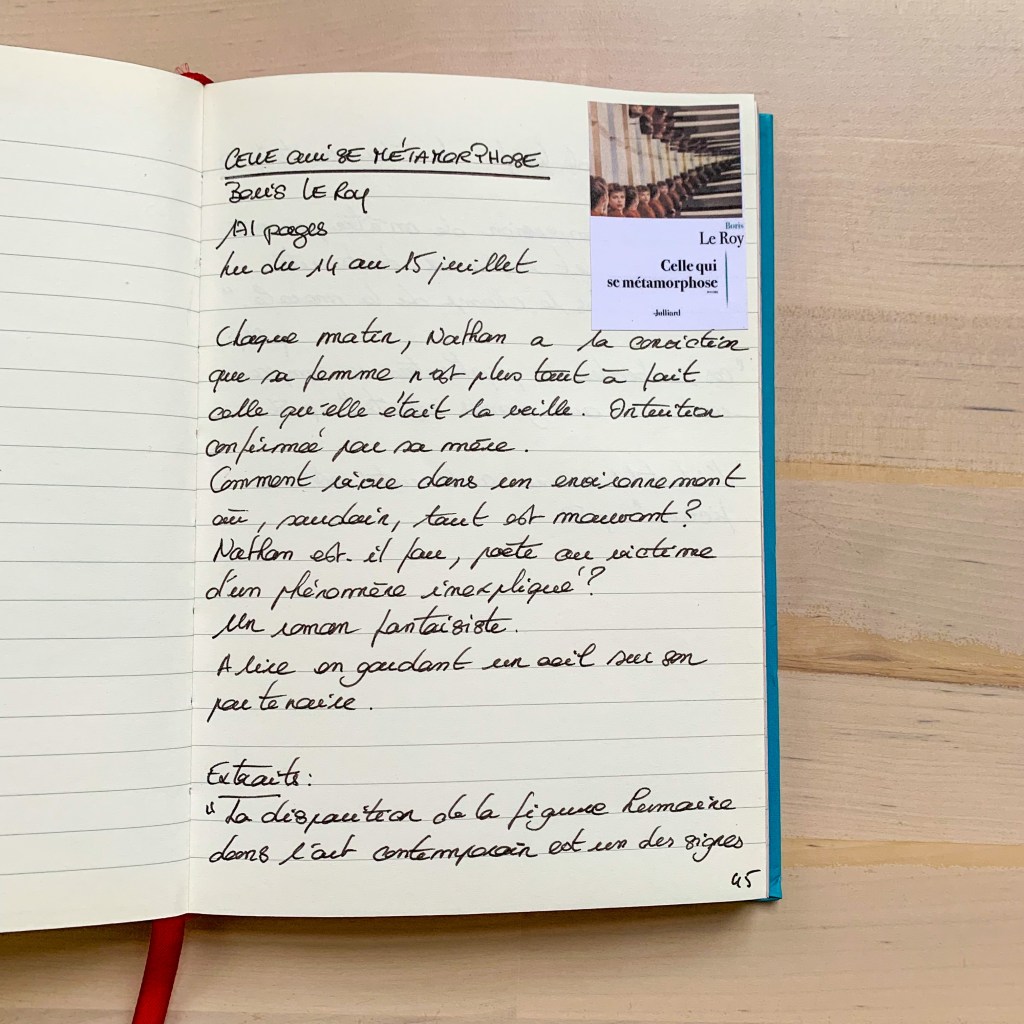 CELLE QUI SE MÉTAMORPHOSE
Boris LE Roy
pages
lu du 14 au 15 juillet
Boris
Le Roy
Celle qui
se métamorphose
Julliard
Chaque matin, Nathan a la conviction
que sa femme n'est plus tout à fait
celle qu'elle était la veille. Intuition
confirmée par sa mère.
Comment vivre dans un environnement
où, soudain, tout est mouvant?
Nathan est-il fou, poète ou victime
d'un phénomène inexpliqué?
Un roman fantaisiste.
A lire en gardant un oeil sur son
partenaire.
Extraits:
"La disparition de la figure humaine
dans l'art contemporain est un des signes
45